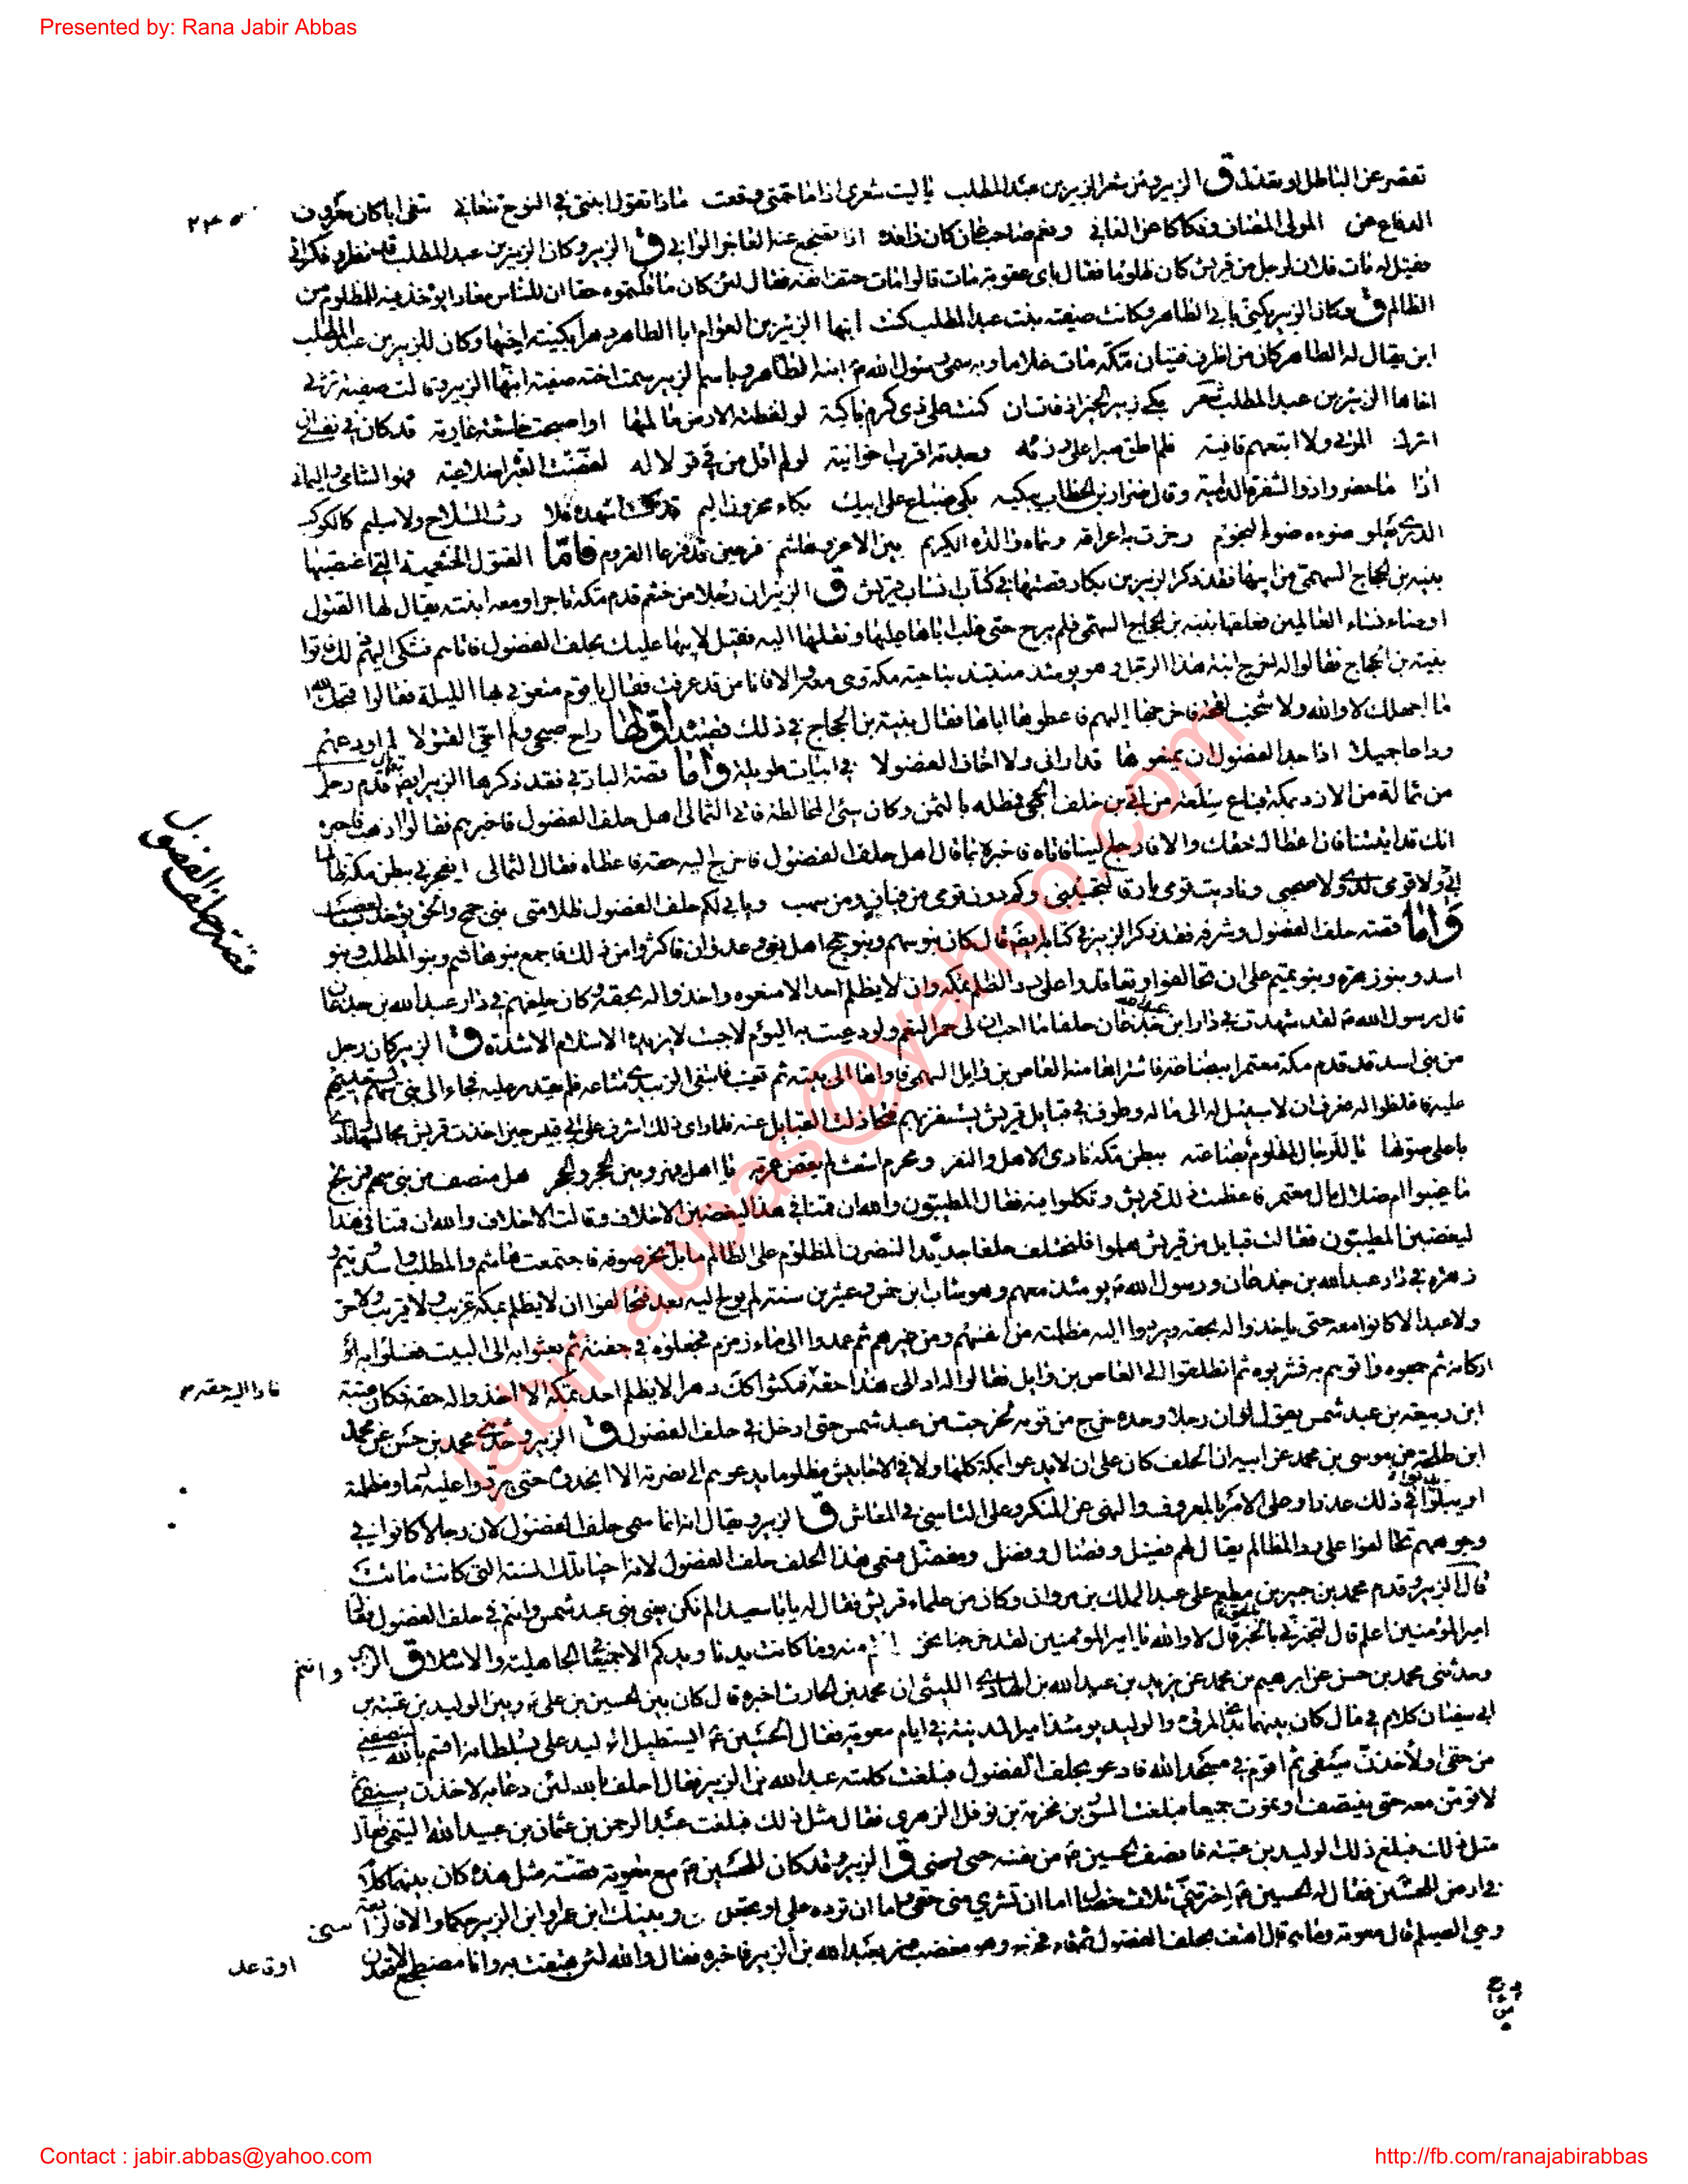 Presented by: Rana Jabir Abbas
تقصر عن الباطل او تعتذر ق الزبير ومن شعر الزبير بن عبد المطلب يا ليت شعرى اذا ما حمتى وقعت ماذا تقول ابنتى فى النوح تنعانى تنعى ابا كان معروف
الدفاع عن المولى المضاف وفكاكا عن العانى ونعم صاحب عان كان رافده اذا تضجع عنه العاجز الوانى ق الزبير وكان الزبير بن عبد المطلب
فقيل له مات فلان لرجل من قريش كان ظلوما فقال باى عقوبة مات قالوا مات حتف انفه فقال لئن كان ما قلتموه حقا ان للناس معادا يؤخذ فيه للمظلوم من
الظالم ق وكان الزبير يكنى بابى الطاهر وكانت صفية بنت عبد المطلب كنت ابنها الزبير بن العوام ابا الطاهر دهرا بكنية اخيها وكان للزبير بن عبد المطلب
ابن يقال له الطاهر كان من اظرف فتيان مكة مات غلاما وبه سمى رسول الله ص ابنه الطاهر وباسم الزبير سمت اخته صفية ابنها الزبير وقالت صفية ترثى
اخاها الزبير بن عبد المطلب شعر بكى زبير الخير اذ فات ان كنت على ذى كرم باكية لو لفظته الارض ما لمتها او اصبحت خاشعة عارية قد كان فى نفسى ان
اترك الموتى ولا اتبعهم قافية فلم اطق صبرا على رزئه وجدته اقرب اخوانيه لو لم اقل من فى قولا له لقضت العبرة اضلاعيه فهو الشامى واليمانى
اذا ما حضروا ذو الشفرة الدامية وقال ضرار بن الخطاب يبكيه بكى ضباع على ابيك بكاء محزون اليم قد كنت انشده فلا رث السلاح ولا سليم كالكوكب
الدرى يعلو ضوءه ضوء النجوم زخرت به اعراقه ونماه والده الكريم بين الاغر وهاشم فرعين قد فرعا القروم فاما القتول الخثعمية التى اغتصبها
نبيه بن الحجاج السهمى من ابيها فقد ذكر الزبير بن بكار قصتها فى كتاب انساب قريش ق الزبير ان رجلا من خثعم قدم مكة تاجرا ومعه ابنته يقال لها القتول
اوضاء نساء العالمين فعلقها نبيه بن الحجاج السهمى فلم يبرح حتى غلب اباها عليها ونقلها اليه فقيل لابيها عليك بحلف الفضول فاتاهم فشكى اليهم ذلك فاتوا
نبيه بن الحجاج فقالوا له اخرج ابنة هذا الرجل وهو يومئذ منتبذ بناحية مكة وهى معه والا فانا من قد عرفت فقال يا قوم متعونى بها الليلة فقالوا قبحك الله
ما اجهلك لا والله ولا شخب لقحة فاخرجها اليهم فاعطوها اباها فقال نبيه بن الحجاج فى ذلك قصيدة اولها راح صحبى ولم احى القتولا لم اودعهم
وداعا جميلا اذ اجد الفضول ان يمنعوها قد ارانى ولا اخاف الفضولا فى ابيات طويلة واما قصة البارقى فقد ذكرها الزبير ايضا قال قدم رجل
من ثمالة من الازد مكة فباع سلعة من ابى بن خلف الجمحى فظله بالثمن وكان سيئ المخالطة فاتى الثمالى اهل حلف الفضول فاخبرهم فقالوا اذهب فاخبره
انك قد اتيتنا فان اعطاك حقك والا فارجع الينا فاتاه فاخبره بما قال اهل حلف الفضول فاخرج اليه حقه فاعطاه فقال الثمالى ايفجر بى ببطن مكة ظالما
ابى ولا قومى لدى ولا صحبى وناديت قومى بارقا لتجيبنى وكم دون قومى من فياف ومن سهب ويابى لكم حلف الفضول ظلامتى بنى جمح والحق يؤخذ بالغصب
واما قصة حلف الفضول وشرفه فقد ذكر الزبير فى كتابه ايضا قال كان بنو سهم وبنو جمح اهل بغى وعدوان فاكثروا من ذلك فاجمع بنو هاشم وبنو المطلب وبنو
قصة حلف الفضول
اسد وبنو زهرة وبنو تيم على ان تحالفوا وتعاقدوا على رد الظلم بمكة وان لا يظلم احد الا منعوه واخذوا له بحقه وكان حلفهم فى دار عبد الله بن جدعان
قال رسول الله ص لقد شهدت فى دار عبد الله ابن جدعان حلفا ما احب ان لى به حمر النعم ولو دعيت به اليوم لاجبت لا يزيده الاسلام الا شدة ق الزبير كان رجل
من بنى اسد قد قدم مكة معتمرا ببضاعة فاشتراها منه العاص بن وايل السهمى فاواها الى بيته ثم تغيب فابتغى الزبيدى متاعه فلم يقدر عليه فجاء الى بنى سهم يستعديهم
عليه فاغلظوا له فعرف ان لا سبيل له الى ماله وطوف فى قبايل قريش يستنفر بهم فتخاذلت القبايل عنه فلما راى ذلك اشرف على ابى قبيس حين اخذت قريش مجالسها ونادى
باعلى صوته يا للرجال لمظلوم بضاعته ببطن مكة نائى الاهل والنفر ومحرم اشعث لم يقض عمرته يا اهل فهر وبين الحجر والحجر هل منصف من بنى سهم فمرتجع
ما غيبوا ام ضلال مال معتمر فاعظمت ذلك قريش وتكلموا فيه فقال المطيبون والله ان قمنا فى هذا ليغضبن الاحلاف وقالت الاحلاف والله ان قمنا فى هذا
ليغضبن المطيبون فقالت قبايل من قريش هلموا فلنحتلف حلفا جديدا لننصرن المظلوم على الظالم ما بل بحر صوفة فاجتمعت هاشم والمطلب واسد وتيم و
زهرة فى دار عبد الله بن جدعان ورسول الله ص يومئذ معهم وهو شاب ابن خمس وعشرين سنة لم يوح اليه بعد فتحالفوا ان لا يظلم بمكة غريب ولا قريب ولا حر
ولا عبد الا كانوا معه حتى ياخذوا له بحقه ويردوا اليه مظلمته من انفسهم ومن غيرهم ثم عمدوا الى ماء زمزم فجعلوه فى جفنة ثم بعثوا به الى البيت فغسلوا به
اركانه ثم جمعوه واتوهم به فشربوه ثم انطلقوا الى العاص بن وايل فقالوا له اد الى هذا حقه فمكثوا كذلك دهرا لا يظلم احد بمكة الا اخذوا له حقه فكان عتبة
فادى اليه حقه
ابن ربيعة بن عبد شمس يقول لو ان رجلا وحده خرج من قومه لخرجت من عبد شمس حتى ادخل فى حلف الفضول ق الزبير وحدثنى محمد بن حسن عن محمد
ابن طلحة عن موسى بن محمد عن ابيه ان الحلف كان على ان لا يدعوا بمكة كلها ولا فى الاحابيش مظلوما يدعوهم الى نصرته الا انجدوه حتى يردوا عليه مظلمته
او يبلوا فى ذلك عذرا وعلى الامر بالمعروف والنهى عن المنكر وعلى التاسى فى المعاش ق الزبير ويقال انه انما سمى حلف الفضول لان رجالا كانوا فى
وجوههم تحالفوا على رد المظالم يقال لهم فضيل وفضال وفضل ومفضل فسمى هذا الحلف حلف الفضول لانه احيا تلك السنة التى كانت ماتت
قال الزبير وقدم محمد بن جبير بن مطعم على عبد الملك بن مروان وكان من علماء قريش فقال له يا ابا سعيد الم نكن يعنى بنى عبد شمس وانتم فى حلف الفضول فقال
امير المؤمنين اعلم قال لتخبرنى بالحق قال لا والله يا امير المؤمنين لقد خرجنا نحن وانتم منه وما كانت يدنا ويدكم الا جميعا فى الجاهلية والاسلام ق الزبير
وحدثنى محمد بن حسن عن ابراهيم بن محمد عن يزيد بن عبد الله بن الهادى الليثى ان محمد بن الحارث اخبره قال كان بين الحسين بن على ع وبين الوليد بن عتبة بن
ابى سفيان كلام فى مال كان بينهما بذى المروة والوليد يومئذ امير المدينة فى ايام معوية فقال الحسين ع ايستطيل الوليد على بسلطانه اقسم بالله لينصفنى
من حقى او لاخذن سيفى ثم اقوم فى مسجد الله فادعو بحلف الفضول فبلغت كلمته عبد الله بن الزبير فقال احلف بالله لئن دعا به لاخذن سيفى ثم
لاقومن معه حتى ينتصف او نموت جميعا فبلغت المسور بن مخرمة بن نوفل الزهرى فقال مثل ذلك فبلغت عبد الرحمن بن عثمان بن عبيد الله التيمى فقال
مثل ذلك فبلغ ذلك الوليد بن عتبة فانصف الحسين ع من نفسه حتى رضى ق الزبير وقد كان للحسين ع مع معوية قصة مثل هذه كان بينهما كلام
فى ارض للحسين فقال له الحسين ع اختر منى ثلاث خصال اما ان تشترى منى حقى واما ان ترده على او تجعل بينى وبينك ابن عمر او ابن الزبير حكما والا فالرابعة
وهى الصيلم قال معوية وما هى قال اهتف بحلف الفضول ثم قام فخرج وهو مغضب فمر بعبد الله بن الزبير فاخبره فقال والله لئن هتفت به وانا مضطجع لاقعدن
Contact : jabir.abbas@yahoo.com
http://fb.com/ranajabirabbas
jabir.abbas@yahoo.com